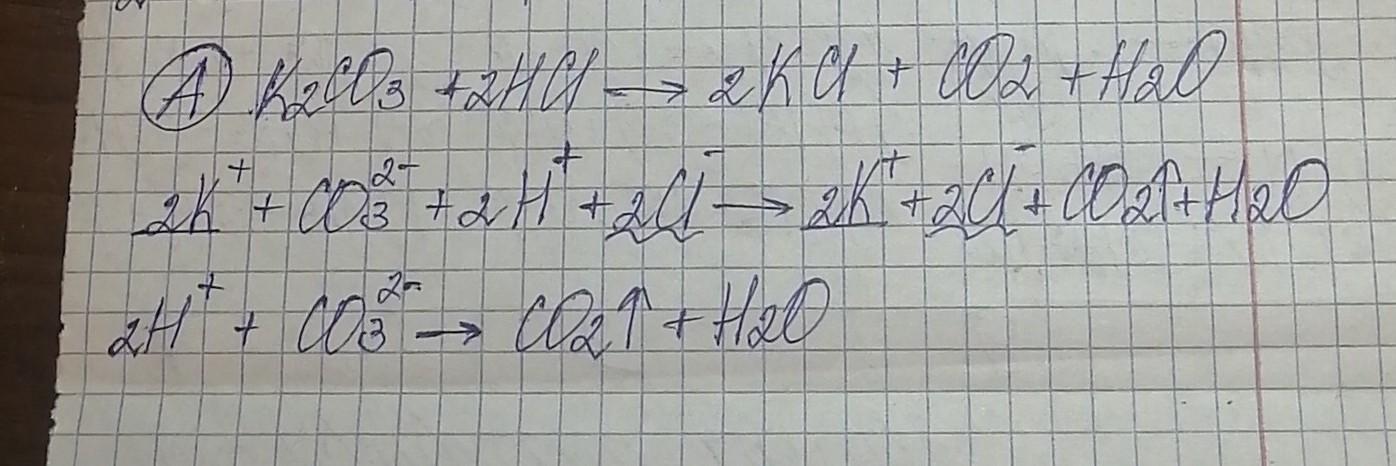 Ⓐ K₂CO₃ + 2HCl → 2KCl + CO₂ + H₂O
2K⁺ + CO₃²⁻ + 2H⁺ + 2Cl⁻ → 2K⁺ + 2Cl⁻ + CO₂↑ + H₂O
2H⁺ + CO₃²⁻ → CO₂↑ + H₂O